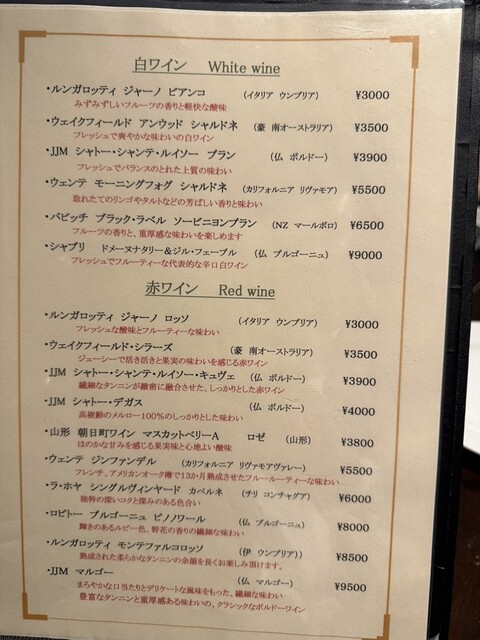 白ワイン White wine
・ルンガロッティ ジャーノ ビアンコ (イタリア ウンブリア) ¥3000
みずみずしいフルーツの香りと軽快な酸味
・ウェイクフィールド アンウッド シャルドネ (豪 南オーストラリア) ¥3500
フレッシュで爽やかな味わいの白ワイン
・JJM シャトー・シャンテ・ルイソー ブラン (仏 ボルドー) ¥3900
フレッシュでバランスのとれた上質の味わい
・ウェンテ モーニングフォグ シャルドネ (カリフォルニア リヴァモア) ¥5500
取れたてのリンゴやタルトなどの芳ばしい香りと味わい
・バビッチ ブラック・ラベル ソービニヨンブラン (NZ マールボロ) ¥6500
フルーツの香りと、重厚感な味わいを楽しめます
・シャブリ ドメーヌナタリー＆ジル・フェーブル (仏 ブルゴーニュ) ¥9000
フレッシュでフルーティーな代表的な辛口白ワイン
赤ワイン Red wine
・ルンガロッティ ジャーノ ロッソ (イタリア ウンブリア) ¥3000
フレッシュな酸味とフルーティーな味わい
・ウェイクフィールド・シラーズ (豪 南オーストラリア) ¥3500
ジューシーで活き活きと果実の味わいを感じる赤ワイン
・JJM シャトー・シャンテ・ルイソー・キュヴェ (仏 ボルドー) ¥3900
繊細なタンニンが緻密に融合させた、しっかりとした赤ワイン
・JJM シャトー・デガス (仏 ボルドー) ¥4000
高樹齢のメルロー100%のしっかりとした味わい
・山形 朝日町ワイン マスカットベリーA ロゼ (山形) ¥3800
ほのかな甘みを感じる果実味と心地よい酸味
・ウェンテ ジンファンデル (カリフォルニア リヴァモアヴァレー) ¥5500
フレンチ、アメリカンオーク樽で13か月熟成させたフルールーティーな味わい
・ラ・ホヤ シングルヴィンヤード カベルネ (チリ コンチャグア) ¥6000
独特の深いコクと深みのある色合い
・ロピトー ブルゴーニュ ピノノワール (仏 ブルゴーニュ) ¥8000
輝きのあるルビー色、野花の香りの繊細な味わい
・ルンガロッティ モンテファルコロッソ (伊 ウンブリア)) ¥8500
熟成された柔らかなタンニンの余韻を長くお楽しみ頂けます。
・JJM マルゴー (仏 マルゴー) ¥9500
まろやかな口当たりとデリケートな風味をもった、繊細な味わい
豊富なタンニンと重厚感ある味わいの、クラシックなボルドーワイン